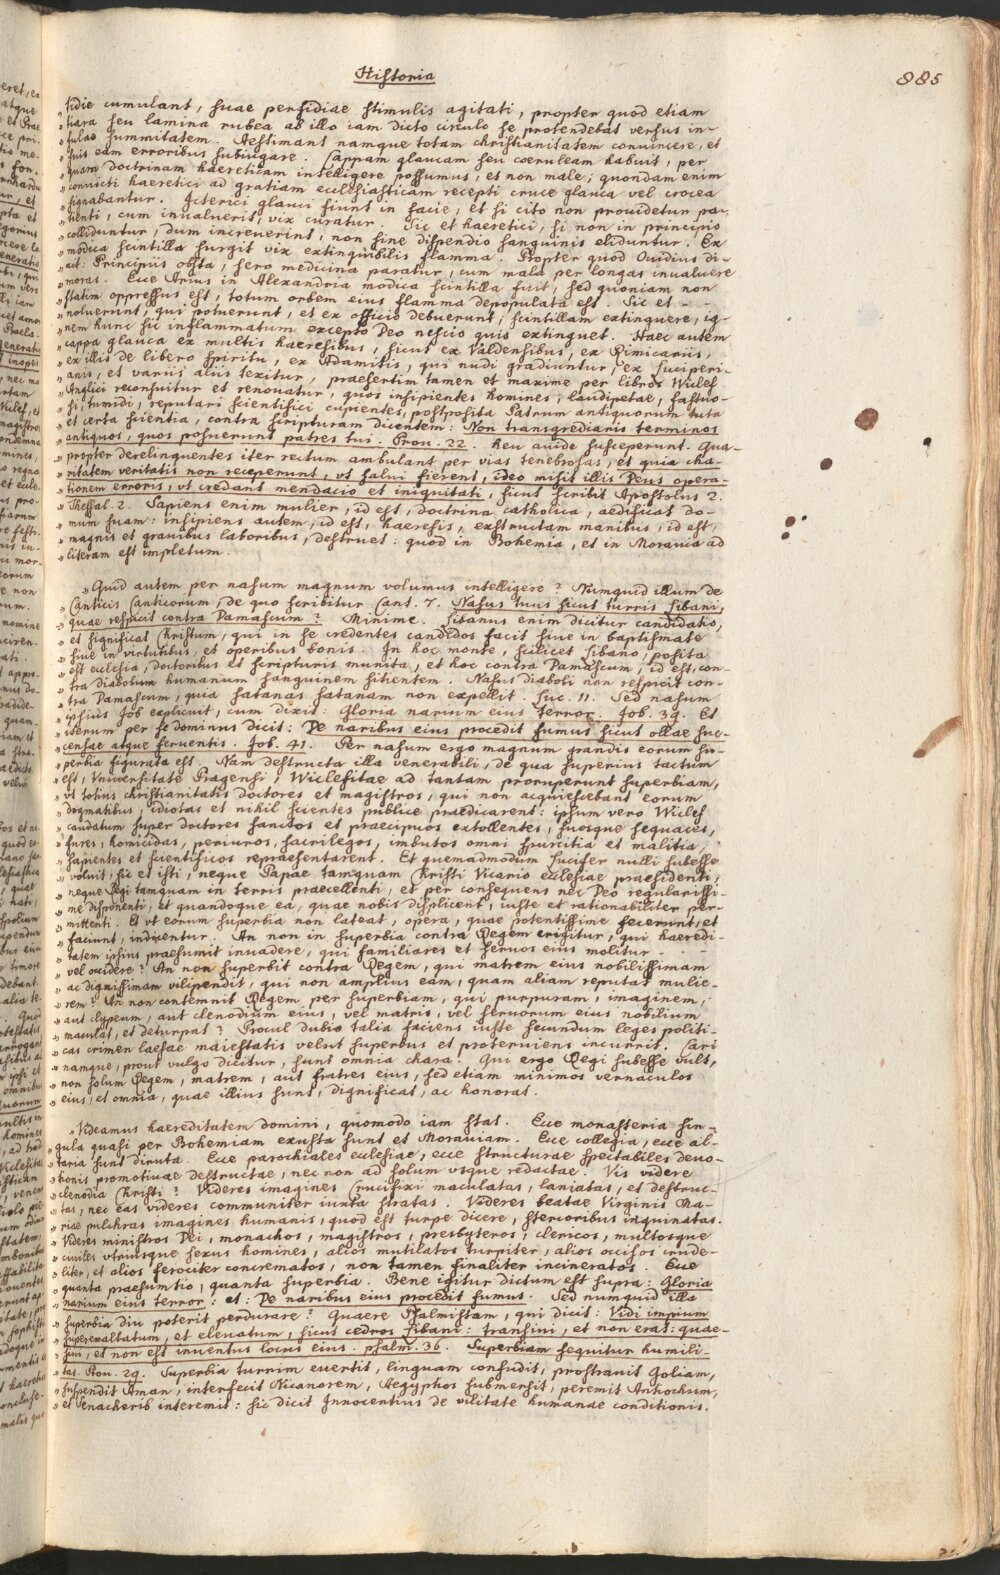 Historia
885
tidie cumulant, suae persidiae stimulis agitati, propter quod etiam
„ tiara seu lamina rubea ab illo iam dicto circulo se protendebat versus in-
„ fulae summitatem. Aestimant namque totam christianitatem convincere, et
„ suis eam erroribus subiugare. Cappam glaucam seu coeruleam habuit, per
„ quam doctrinam haereticam intelligere possumus, et non male; quondam enim
„ convicti haeretici ad gratiam ecclesiasticam recepti cruce glauca vel crocea
„ signabantur. Icterici glauci fiunt in facie, et si cito non prouidetur pa-
„ tienti, cum invalueris, vix curatur. Sic et haeretici, si non in principio
„ colliduntur, dum increuerint, non sine dispendio sanguinis eliduntur. Ex
„ modica scintilla surgit vix extinguibilis flamma. Propter quod Ouidius di-
„ cit: Principiis obsta, sero medicina paratur, cum mala per longas inualuere
„ moras. Ecce Arius in Alexandria modica scintilla fuit, sed quoniam non
„ statim oppressus est, totum orbem eius flamma depopulata est. Sic et - -
„ noluerunt, qui potuerunt, et ex officio debuerunt, scintillam extinguere, ig-
„ nem hunc sic inflammatum excepto Deo nescio quis extinguet. Haec autem
„ cappa glauca ex multis haeresibus, sicut ex Valdensibus, ex Pimicariis,
„ ex illis de libero spiritu, ex Adamitis, qui nudi gradiuntur, ex Luciperi-
„ anis, et variis aliis texitur, praesertim tamen et maxime per libros Wiclef
„ Anglici reconsuitur et renouatur, quos insipientes homines, laudipetae, fastuo-
„ si, tumidi, reputari scientifici cupientes, postposita Patrum antiquorum tuta
„ et certa scientia, contra scripturam dicentem: Non transgrediaris terminos
„ antiquos, quos posuerunt patres tui. Prou. 22. heu auide susceperunt. Qua-
„ propter derelinquentes iter rectum ambulant per vias tenebrosas, et quia cha-
„ ritatem veritatis non receperunt, vt salui fierent, ideo misit illis Deus opera-
„ tionem erroris, vt credant mendacio et iniquitati, sicut scribit Apostolus 2.
„ Thessal. 2. Sapiens enim mulier, id est, doctrina catholica, aedificat do-
„ mum suam: insipiens autem, id est, haeresis, exstructam manibus, id est,
„ magnis et grauibus laboribus, destruet: quod in Bohemia, et in Morauia ad
„ literam est impletum.
„ Quid autem per nasum magnum volumus intelligere? Numquid illum de
„ Canticis Canticorum, de quo scribitur Cant. 7. Nasus tuus sicut turris Libani,
„ quae respicit contra Damascum? Minime. Libanus enim dicitur candidatio,
„ et significat Christum, qui in se credentes candidos facit siue in baptismate
„ siue in virtutibus, et operibus bonis. In hoc monte, scilicet Libano, posita
„ est ecclesia, doctoribus et scripturis munita, et hoc contra Damascum, id est, con-
„ tra diabolum humanum sanguinem sitientem. Nasus diaboli non respicit con-
„ tra Damascum, quia satanas satanam non expellit. Luc. 11. Sed nasum
„ ipsius Job explicuit, cum dixit: Gloria narium eius terror. Job. 39. Et
„ iterum per se dominus dicit: De naribus eius procedit fumus sicut ollae suc-
„ censae atque feruentis. Job. 41. Per nasum ergo magnum grandis eorum su-
„ perbia figurata est. Nam destructa illa venerabili, de qua superius tactum
„ est, Vniuersitate Pragensi, Wiclefitae ad tantam proruperunt superbiam,
„ vt totius christianitatis doctores et magistros, qui non acquiescebant eorum
„ dogmatibus, idiotas et nihil scientes publice praedicarent: ipsum vero Wiclef
„ caudatum super doctores sanctos et praecipuos extollentes, suosque sequaces,
„ fures, homicidas, periuros, sacrilegos, imbutos omni spurcitia et malitia,
„ sapientes et scientificos repraesentarent. Et quemadmodum Lucifer nulli subesse
„ voluit, sic et isti, neque Papae tamquam Christi Vicario ecclesiae praesidenti,
„ neque Regi tamquam in terris praecellenti, et per consequens nec Deo regularissi-
„ me disponenti, et quandoque ea, quae nobis displicent, iuste et rationabiliter per-
„ mittenti. Et vt eorum superbia non lateat, opera, quae potentissime fecerunt, et
„ faciunt, inducentur. An non in superbia contra Regem erigitur, qui haeredi-
„ tatem ipsius praesumit inuadere, qui familiares et seruos eius molitur - - -
„ vel occidere? An non superbit contra Regem, qui matrem eius nobilissimam
„ ac dignissimam vilipendit, qui non amplius eam, quam aliam reputat mulie-
„ rem? An non contemnit Regem per superbiam, qui purpuram, imaginem,
„ aut clypeum, aut clenodium eius, vel matris, vel seruorum eius nobilium
„ maculat, et deturpat? Procul dubio talia faciens iuste secundum leges politi-
„ cas crimen laesae maiestatis velut superbus et proteruiens incurrit. Cari
„ namque, prout vulgo dicitur, sunt omnia chara. Qui ergo Regi subesse vult,
„ non solum Regem, matrem, aut fratres eius, sed etiam minimos vernaculos
„ eius, et omnia, quae illius sunt, dignificat, ac honorat.
„ Videamus haereditatem domini, quomodo iam stat. Ecce monasteria sin-
„ gula quasi per Bohemiam exusta sunt et Morauiam. Ecce collegia, ecce al-
„ taria sunt diruta. Ecce parochiales ecclesiae, ecce structurae spectabiles deuo-
„ tionis promotiuae destructae, nec non ad solum vsque redactae. Vis videre
„ clenodia Christi? Videres imagines Crucifixi maculatas, laniatas, et destruc-
„ tas, nec eas videres communiter iuxta stratas. Videres beatae Virginis Ma-
„ riae pulchras imagines humanis, quod est turpe dicere, stercoribus inquinatas.
„ Videres ministros Dei, monachos, magistros, presbyteros, clericos, multosque
„ ciuiles vtriusque sexus homines, alios mutilatos turpiter, alios occisos crude-
„ liter, et alios ferociter concrematos, non tamen finaliter incineratos. Ecce
„ quanta praesumtio, quanta superbia. Bene igitur dictum est supra: Gloria
„ narium eius terror: et: De naribus eius procedit fumus. Sed numquid illa
„ superbia diu poterit perdurare? Quaere Psalmistam, qui dicit: Vidi impium
„ superexaltatum, et eleuatum, sicut cedros Libani: transiui, et non erat: quae-
„ siui, et non est inuentus locus eius. Psalm. 36. Superbiam sequitur humili-
„ tas. Prou. 29. Superbia turrim euertit, linguam confudit, prostrauit Goliam,
„ suspendit Aman, interfecit Nicanorem, Aegyptos submersit, peremit Antiochum,
„ et Senacherib interemit: sic dicit Innocentius de vilitate humanae conditionis.